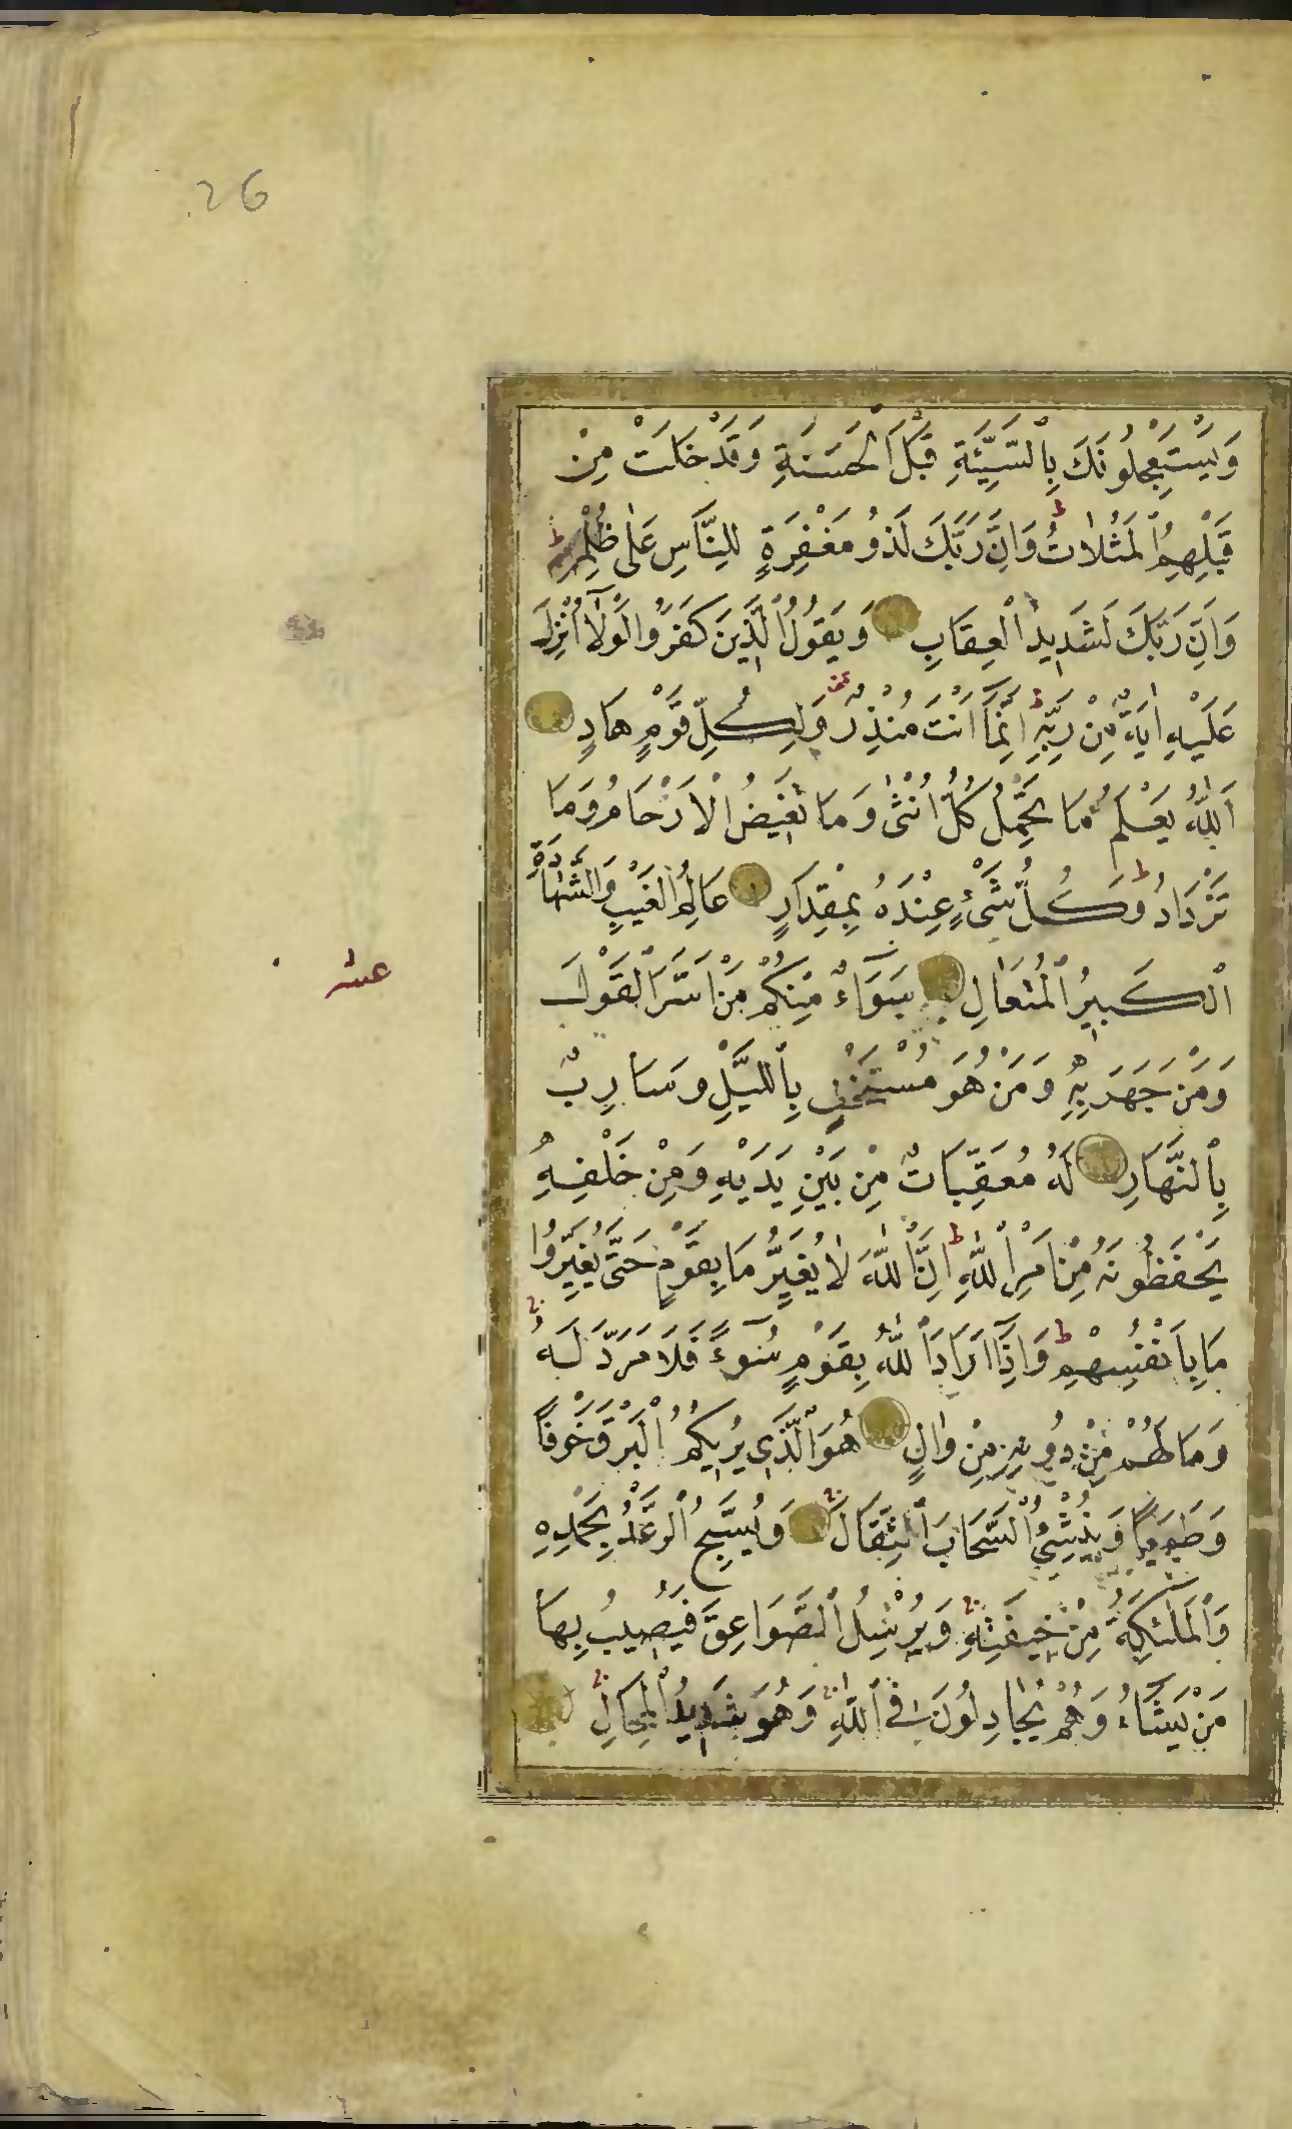 26
وَيَسْتَعْجِلُونَكَ بِالسَّيِّئَةِ قَبْلَ الْحَسَنَةِ وَقَدْ خَلَتْ مِنْ
قَبْلِهِمُ الْمَثُلَاتُ ط وَاِنَّ رَبَّكَ لَذُو مَغْفِرَةٍ لِلنَّاسِ عَلٰى ظُلْمِهِمْ ط
وَاِنَّ رَبَّكَ لَشَدِيدُ الْعِقَابِ وَيَقُولُ الَّذِينَ كَفَرُوا لَوْلَٓا اُنْزِلَ
عَلَيْهِ اٰيَةٌ مِنْ رَبِّهِ ط اِنَّمَٓا اَنْتَ مُنْذِرٌ وَلِكُلِّ قَوْمٍ هَادٍ
اَللّٰهُ يَعْلَمُ مَا تَحْمِلُ كُلُّ اُنْثٰى وَمَا تَغِيضُ الْاَرْحَامُ وَمَا
تَزْدَادُ ط وَكُلُّ شَيْءٍ عِنْدَهُ بِمِقْدَارٍ عَالِمُ الْغَيْبِ وَالشَّهَادَةِ
الْكَبِيرُ الْمُتَعَالِ سَوَٓاءٌ مِنْكُمْ مَنْ اَسَرَّ الْقَوْلَ
عشر
وَمَنْ جَهَرَ بِهِ وَمَنْ هُوَ مُسْتَخْفٍ بِاللَّيْلِ وَسَارِبٌ
بِالنَّهَارِ لَهُ مُعَقِّبَاتٌ مِنْ بَيْنِ يَدَيْهِ وَمِنْ خَلْفِهِ
يَحْفَظُونَهُ مِنْ اَمْرِ اللّٰهِ ط اِنَّ اللّٰهَ لَا يُغَيِّرُ مَا بِقَوْمٍ حَتّٰى يُغَيِّرُوا
مَا بِاَنْفُسِهِمْ ط وَاِذَٓا اَرَادَ اللّٰهُ بِقَوْمٍ سُٓوءًا فَلَا مَرَدَّ لَهُ
وَمَا لَهُمْ مِنْ دُونِهِ مِنْ وَالٍ هُوَ الَّذِي يُرِيكُمُ الْبَرْقَ خَوْفًا
وَطَمَعًا وَيُنْشِئُ السَّحَابَ الثِّقَالَ وَيُسَبِّحُ الرَّعْدُ بِحَمْدِهِ
وَالْمَلٰٓئِكَةُ مِنْ خِيفَتِهِ وَيُرْسِلُ الصَّوَاعِقَ فَيُصِيبُ بِهَا
مَنْ يَشَٓاءُ وَهُمْ يُجَادِلُونَ فِي اللّٰهِ وَهُوَ شَدِيدُ الْمِحَالِ